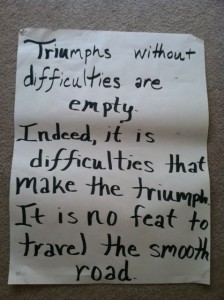 Triumphs without
difficulties are
empty.
Indeed, it is
difficulties that
make the triumph.
It is no feat to
travel the smooth
road.